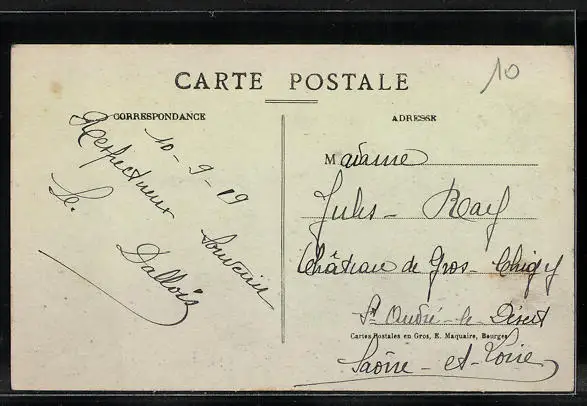 CARTE POSTALE
10
CORRESPONDANCE
10-9-19
Respectueux Souvenir
Dallois
ADRESSE
Madame
Jules Ray
Château de Gros-Chigy
St André-le-Désert
Cartes Postales en Gros, E. Maquaire, Bourges
Saône-et-Loire